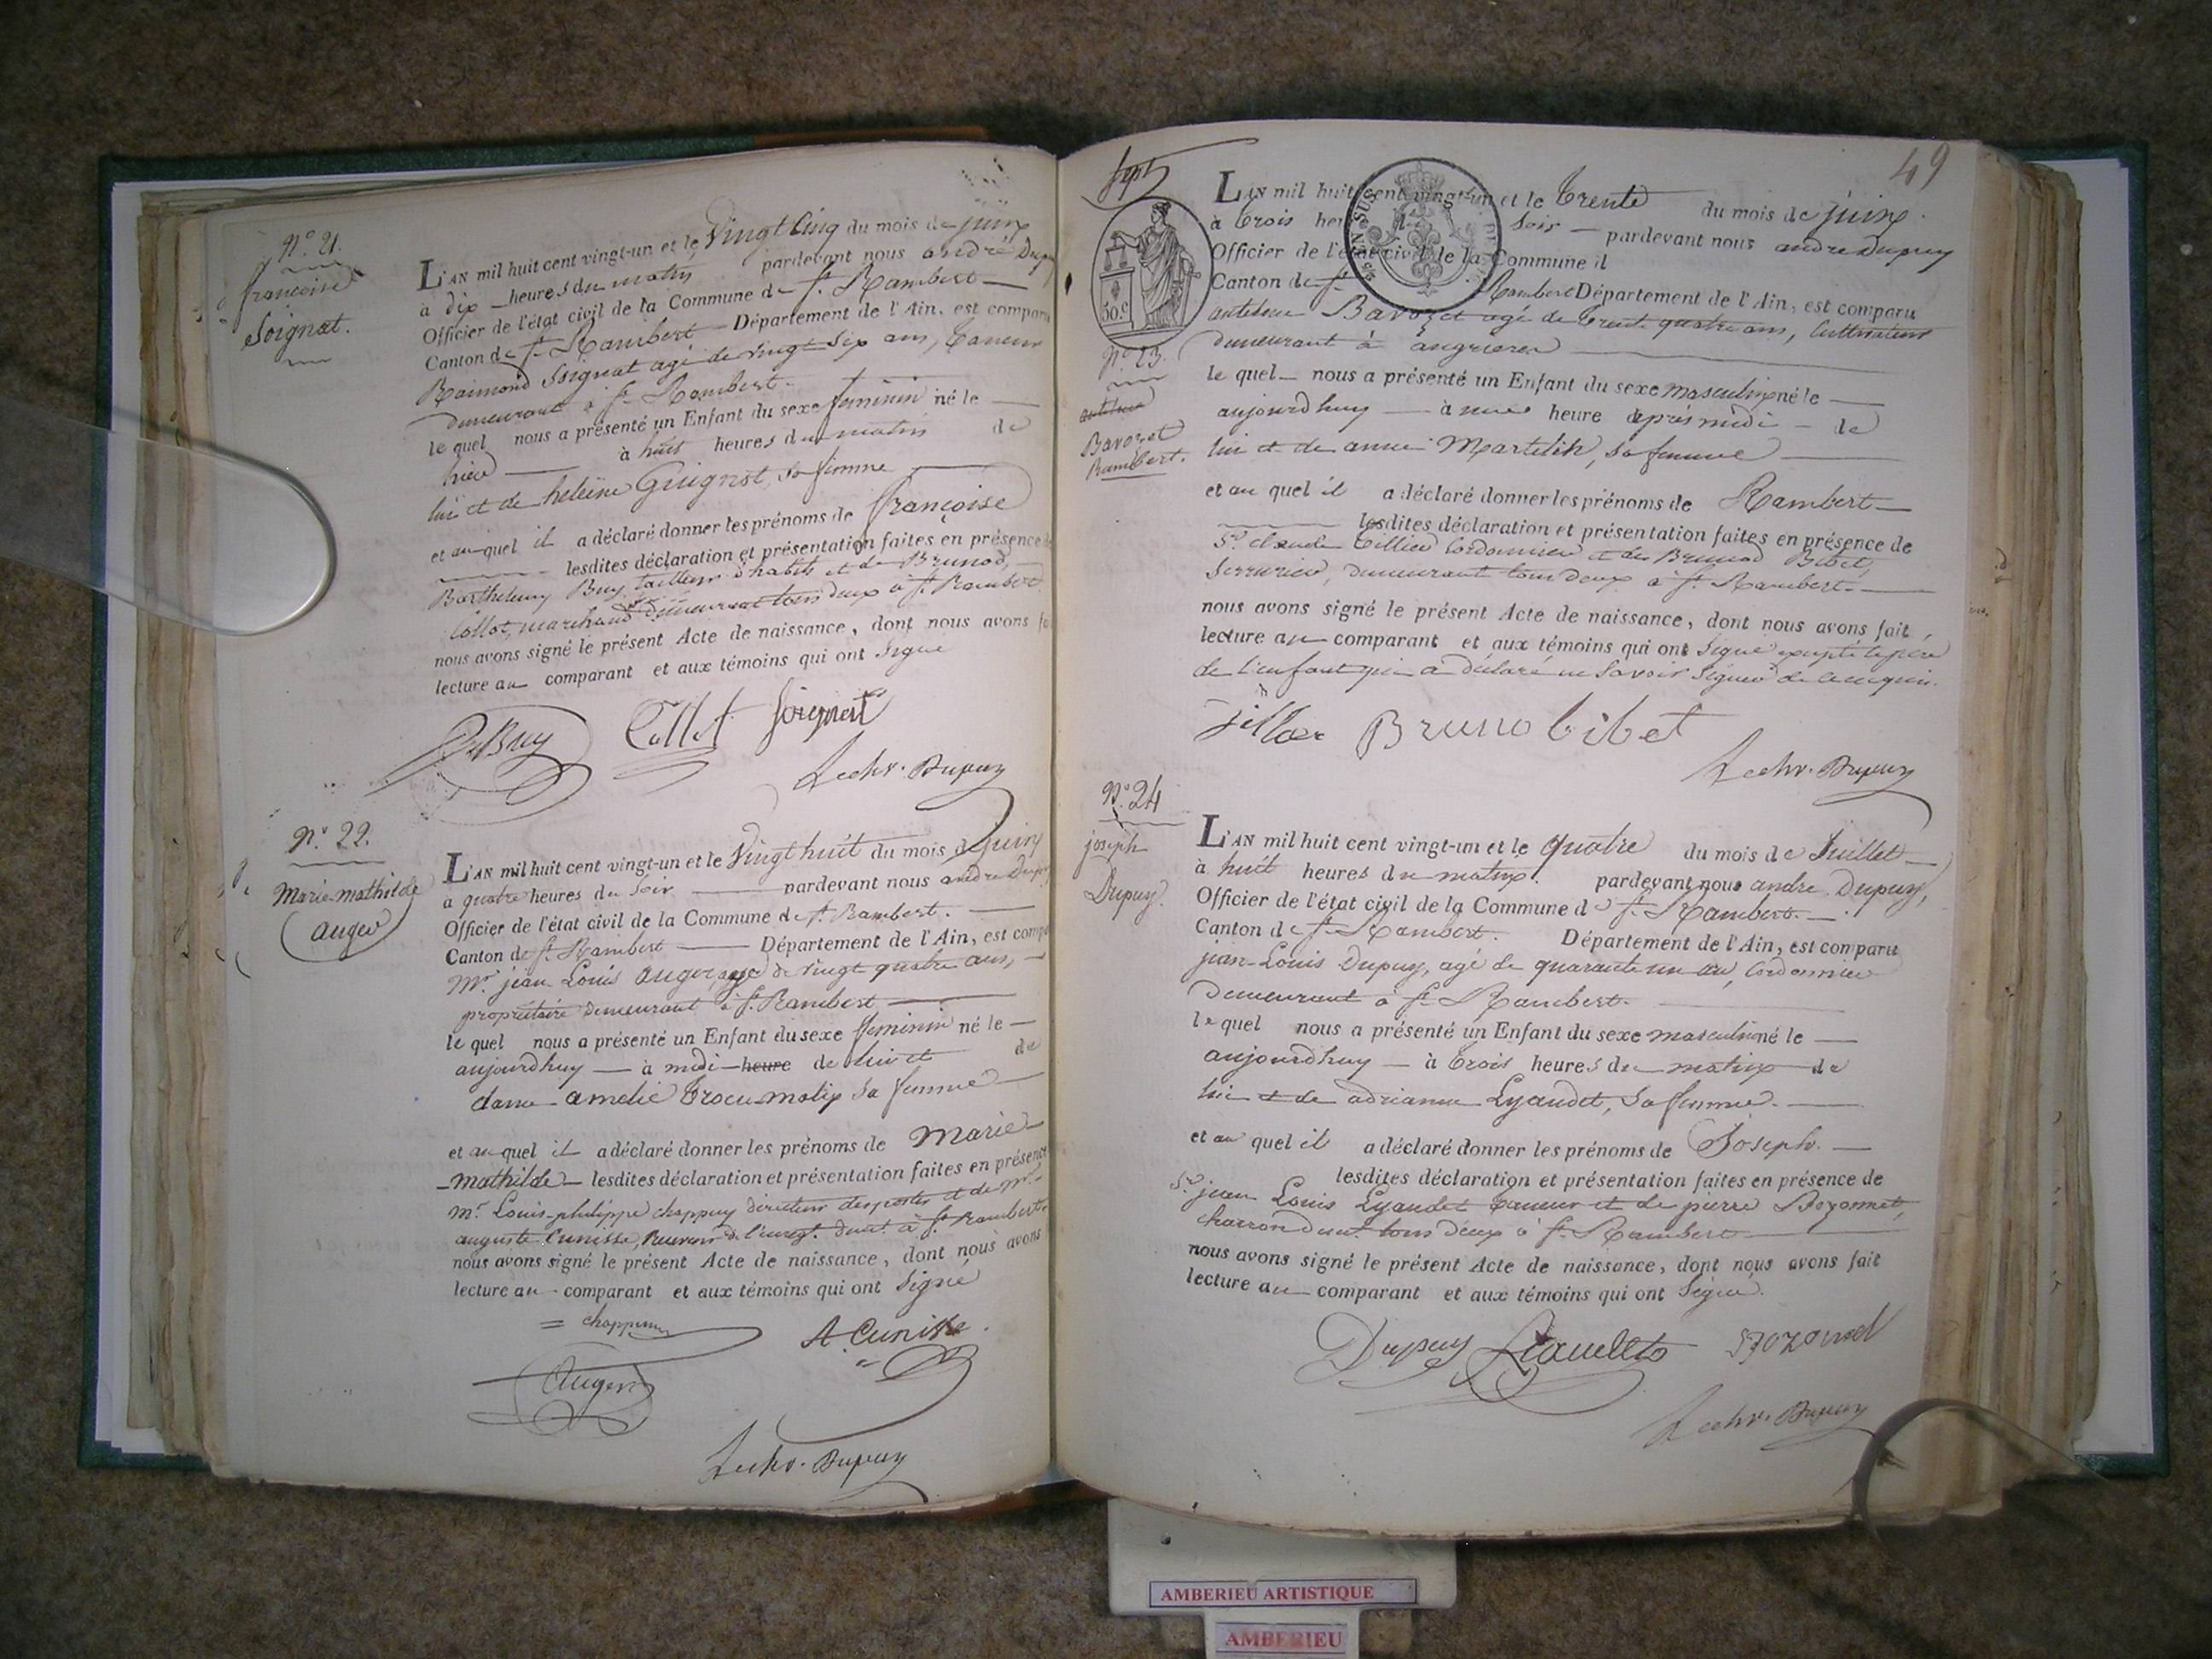 N.° 21.
françoise
Soignat.
L'AN mil huit cent vingt-un et le Vingt Cinq du mois de juin
à dix heures du matin pardevant nous andré Dupuy
Officier de l'état civil de la Commune de St. Rambert
Canton de St. Rambert Département de l'Ain, est comparu
Raimond Soignat agé de vingt six ans, tanneur
demeurant à St. Rambert.
le quel nous a présenté un Enfant du sexe féminin né le
hier à huit heures du matin de
lui et de heleine Guignot, sa femme
et au quel il a déclaré donner les prénoms de françoise
lesdites déclaration et présentation faites en présence de
Barthelemy Buy, tailleur d'habits et de Brunod,
Collot, marchand demeurant tous deux à St. Rambert
nous avons signé le présent Acte de naissance, dont nous avons fa
lecture au comparant et aux témoins qui ont signé
Buy Collot Soignat
Dupuy
N.° 22.
Marie-mathilde
auger
L'AN mil huit cent vingt-un et le Vingt huit du mois de juin
à quatre heures du soir pardevant nous andré Dupuy
Officier de l'état civil de la Commune de St. Rambert.
Canton de St. Rambert Département de l'Ain, est compa
Mr. jean Louis auger, agé de vingt quatre ans,
propriétaire demeurant à St. Rambert
le quel nous a présenté un Enfant du sexe féminin né le
aujourdhuy à midi heure de lui et de
dame amelie sa femme
et au quel il a déclaré donner les prénoms de Marie
mathilde lesdites déclaration et présentation faites en présence
Mr. Louis-philippe chappuy directeur des postes et de Mr.
auguste Cunisse, Receveur de l'enregt. demt. à St. Rambert
nous avons signé le présent Acte de naissance, dont nous avons
lecture au comparant et aux témoins qui ont signé
chappuy A. Cunisse
Auger
Dupuy
49
Sept
50.c
N.° 23.
Bavozet
Rambert.
L'AN mil huit cent vingt-un et le trente du mois de juin.
à trois heu soir pardevant nous andre Dupuy
Officier de l'état civil de la Commune d
Canton de St. Rambert Département de l'Ain, est comparu
antelme Bavozet agé de trente quatre ans, Cultivateur
demeurant à angrieres
le quel nous a présenté un Enfant du sexe masculin né le
aujourdhuy à une heure après midi de
lui et de anne Martelin, sa femme
et au quel il a déclaré donner les prénoms de Rambert
lesdites déclaration et présentation faites en présence de
Sr. claude tillier Cordonnier et de Brunod Bibet,
Serrurier, demeurant tous deux à St. Rambert.
nous avons signé le présent Acte de naissance, dont nous avons fait
lecture au comparant et aux témoins qui ont signé excepté le père
de l'enfant qui a déclaré ne savoir signer de ce enquis.
Bruno bibet
Dupuy
N.° 24
joseph
Dupuy.
L'AN mil huit cent vingt-un et le quatre du mois de Juillet
à huit heures du matin. pardevant nous andre Dupuy,
Officier de l'état civil de la Commune de St. Rambert.
Canton de St. Rambert. Département de l'Ain, est comparu
jean-Louis Dupuy, agé de quarante un an, Cordonnier
demeurant à St. Rambert.
le quel nous a présenté un Enfant du sexe masculin né le
aujourdhuy à trois heures du matin de
lui et de adrianne Lyaudet, sa femme.
et au quel il a déclaré donner les prénoms de Joseph.
lesdites déclaration et présentation faites en présence de
Sr. jean Louis Lyaudet tanneur et de pierre Bozonnet,
charron demt. tous deux à St. Rambert
nous avons signé le présent Acte de naissance, dont nous avons fait
lecture au comparant et aux témoins qui ont signé.
Dupuy
Dupuy
AMBERIEU ARTISTIQUE
AMBERIEU